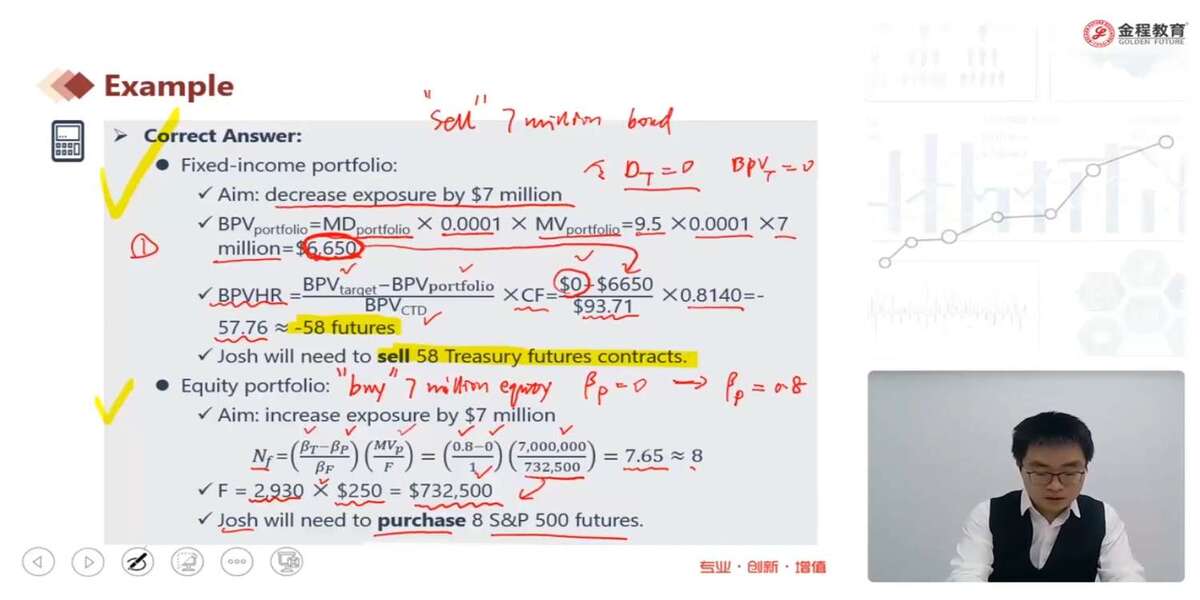 金程教育
GOLDEN FUTURE
Example
"Sell" 7 million bond
➢ Correct Answer:
● Fixed-income portfolio:
D_T=0 BPV_T=0
✓ Aim: decrease exposure by $7 million
✓ BPV_portfolio=MD_portfolio × 0.0001 × MV_portfolio=9.5 ×0.0001 ×7
① million=$6,650
✓ BPVHR =(BPV_target−BPV_portfolio)/BPV_CTD ×CF=($0-$6650)/$93.71 ×0.8140=-
57.76 ≈ -58 futures
✓ Josh will need to sell 58 Treasury futures contracts.
● Equity portfolio: "buy" 7 million equity β_p=0 → β_p=0.8
✓ Aim: increase exposure by $7 million
N_f=((β_T−β_P)/β_F)(MV_p/F) = ((0.8−0)/1)(7,000,000/732,500) = 7.65 ≈ 8
✓ F = 2,930 × $250 = $732,500
✓ Josh will need to purchase 8 S&P 500 futures.
专业·创新·增值